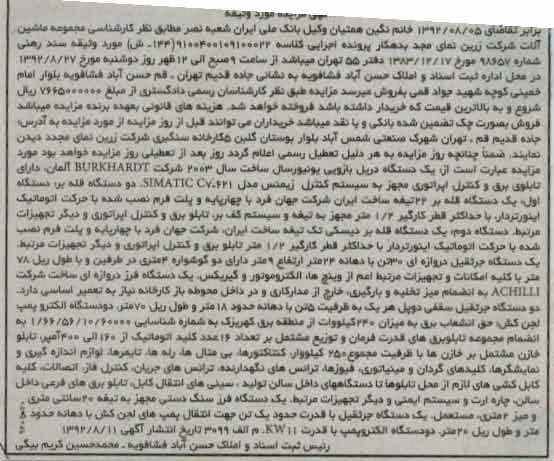 آگهی مزایده مورد وثیقه
برابر تقاضای ۱۳۹۲/۰۸/۰۵ خانم نگین همتیان وکیل بانک ملی ایران شعبه نصر مطابق نظر کارشناسی مجموعه ماشین
آلات شرکت زرین نمای مجد بدهکار پرونده اجرایی کلاسه ۹۱۰۰۴۰۰۱۰۹۱۰۰۰۲۲(۱۲۴ـ ش) مورد وثیقه سند رهنی
شماره ۹۸۶۵۷ مورخ ۱۳۸۳/۱۲/۱۷ دفتر ۵۵ تهران میباشد از ساعت ۹صبح الی ۱۲ظهر روز دوشنبه مورخ ۱۳۹۲/۸/۲۷
در محل اداره ثبت اسناد و املاک حسن آباد فشافویه به نشانی جاده قدیم تهران ـ قم حسن آباد فشافویه بلوار امام
خمینی کوچه شهید جواد قمی بفروش میرسد مزایده طبق نظر کارشناسان رسمی دادگستری از مبلغ ۷۶۶۵۰۰۰۰۰۰ ریال
شروع و به بالاترین قیمت که خریدار داشته باشد فروخته خواهد شد. هزینه های قانونی بعهده برنده مزایده میباشد
فروش بصورت چک تضمین شده بانکی و یا نقد میباشد خریداران می توانند قبل از روز مزایده از مورد مزایده به آدرس:
جاده قدیم قم ـ تهران شهرک صنعتی شمس آباد بلوار بوستان گلبن ۵کارخانه سنگبری شرکت زرین نمای مجد دیدن
نمایند. ضمناً چنانچه روز مزایده به هر دلیل تعطیل رسمی اعلام گردد روز بعد از تعطیلی روز مزایده خواهد بود مورد
مزایده عبارت است از: یک دستگاه دریل بازویی یونیورسال ساخت سال ۲۰۰۳ شرکت BURKHARDT آلمان، دارای
تابلوی برق و کنترل اپراتوری مجهز به سیستم کنترل زیمنس مدل SIMATIC C۷ـ۶۲۱. دو دستگاه قله بر: دستگاه
اول، یک دستگاه قله بر ۲۲تیغه ساخت ایران شرکت جهان فرد با چهارپایه و پلت فرم نصب شده با حرکت اتوماتیک
اینورتردار، با حداکثر قطر کارگیر ۱/۲ متر مجهز به تیغه و سیستم کف بر، تابلو برق و کنترل اپراتوری و دیگر تجهیزات
مرتبط. دستگاه دوم، یک دستگاه قله بر دیسکی تک تیغه ساخت ایران، شرکت جهان فرد با چهارپایه و پلت فرم نصب
شده با حرکت اتوماتیک اینورتردار با حداکثر قطر کارگیر ۱/۲ متر تابلو برق و کنترل اپراتوری و دیگر تجهیزات مرتبط.
یک دستگاه جرثقیل دروازه ای ۳۰تن با دهانه ۲۴متر ارتفاع ۹متر دارای دو گوشواره ۴متری در طرفین و با طول ریل ۷۸
متر با کلیه امکانات و تجهیزات مرتبط اعم از وینچ ها، الکتروموتور و گیربکس. یک دستگاه فرز دروازه ای ساخت شرکت
ACHILLI به انضمام میز تخلیه و بارگیری، خارج از مدارکاری و در داخل محوطه باز کارخانه نیاز به تعمیر اساسی دارد.
دو دستگاه جرثقیل سقفی دوپل هر یک به ظرفیت ۵تن با دهانه حدود ۱۸متر و طول ریل ۷۰متر. دودستگاه الکترو پمپ
لجن کش: حق انشعاب برق به میزان ۲۴۰کیلووات از منطقه برق کهریزک به شماره شناسایی ۱/۶۶/۵۶/۱۰/۶۰۰۰۰ به
انضمام مجموعه تابلوبرق های قدرت فرمان و توزیع مشتمل بر تعداد ۱۶عدد کلید اتوماتیک از ۱۶۰ الی ۴۰۰آمپر، تابلو
خازن مشتمل بر خازن ها با ظرفیت مجموع۲۵۰ کیلووار، کنتاکتورها، بی متال ها، رله ها، تایمرها، لوازم اندازه گیری و
نمایشگرها، کلیدهای گردان و مینیاتوری، فیوزها، ترانس های نگهدارنده، ترانس های جریان، کنترل فاز، اتصالات، کلیه
کابل کشی های لازم از محل تابلوها تا دستگاههای داخل سالن تولید ، سینی های انتقال کابل، تابلو برق های فرعی داخل
سالن، چاره ارت و سیستم ایمنی و دیگر تجهیزات مرتبط. یک دستگاه فرز سنگ دستی مجهز به تیغه ۲۰سانتی متری
و میز ۲متری، مستعمل. یک دستگاه جرثقیل با قدرت حدود یک تن جهت انتقال پمپ های لجن کش با دهانه حدود
متر و طول ریل ۲۰متر. دودستگاه الکتروپمپ با قدرت KW۱۱. م الف ۳۰۹۹ تاریخ انتشار آگهی ۱۳۹۲/۸/۱۱
رئیس ثبت اسناد و املاک حسن آباد فشافویه ـ محمدحسین کریم بیگی